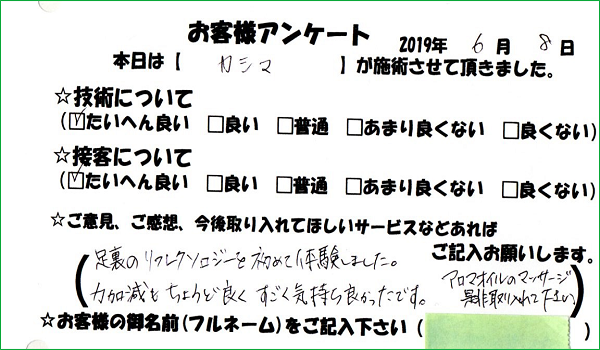 お客様アンケート 2019年 6月 8日
本日は【 カシマ 】が施術させて頂きました。
☆技術について
(☑たいへん良い □良い □普通 □あまり良くない □良くない)
☆接客について
(☑たいへん良い □良い □普通 □あまり良くない □良くない)
☆ご意見、ご感想、今後取り入れてほしいサービスなどあれば
ご記入お願いします。
足裏のリフレクソロジーを初めて体験しました。
力加減もちょうど良くすごく気持ち良かったです。
アロマオイルのマッサージ
是非取り入れて下さい
☆お客様の御名前(フルネーム)をご記入下さい( )